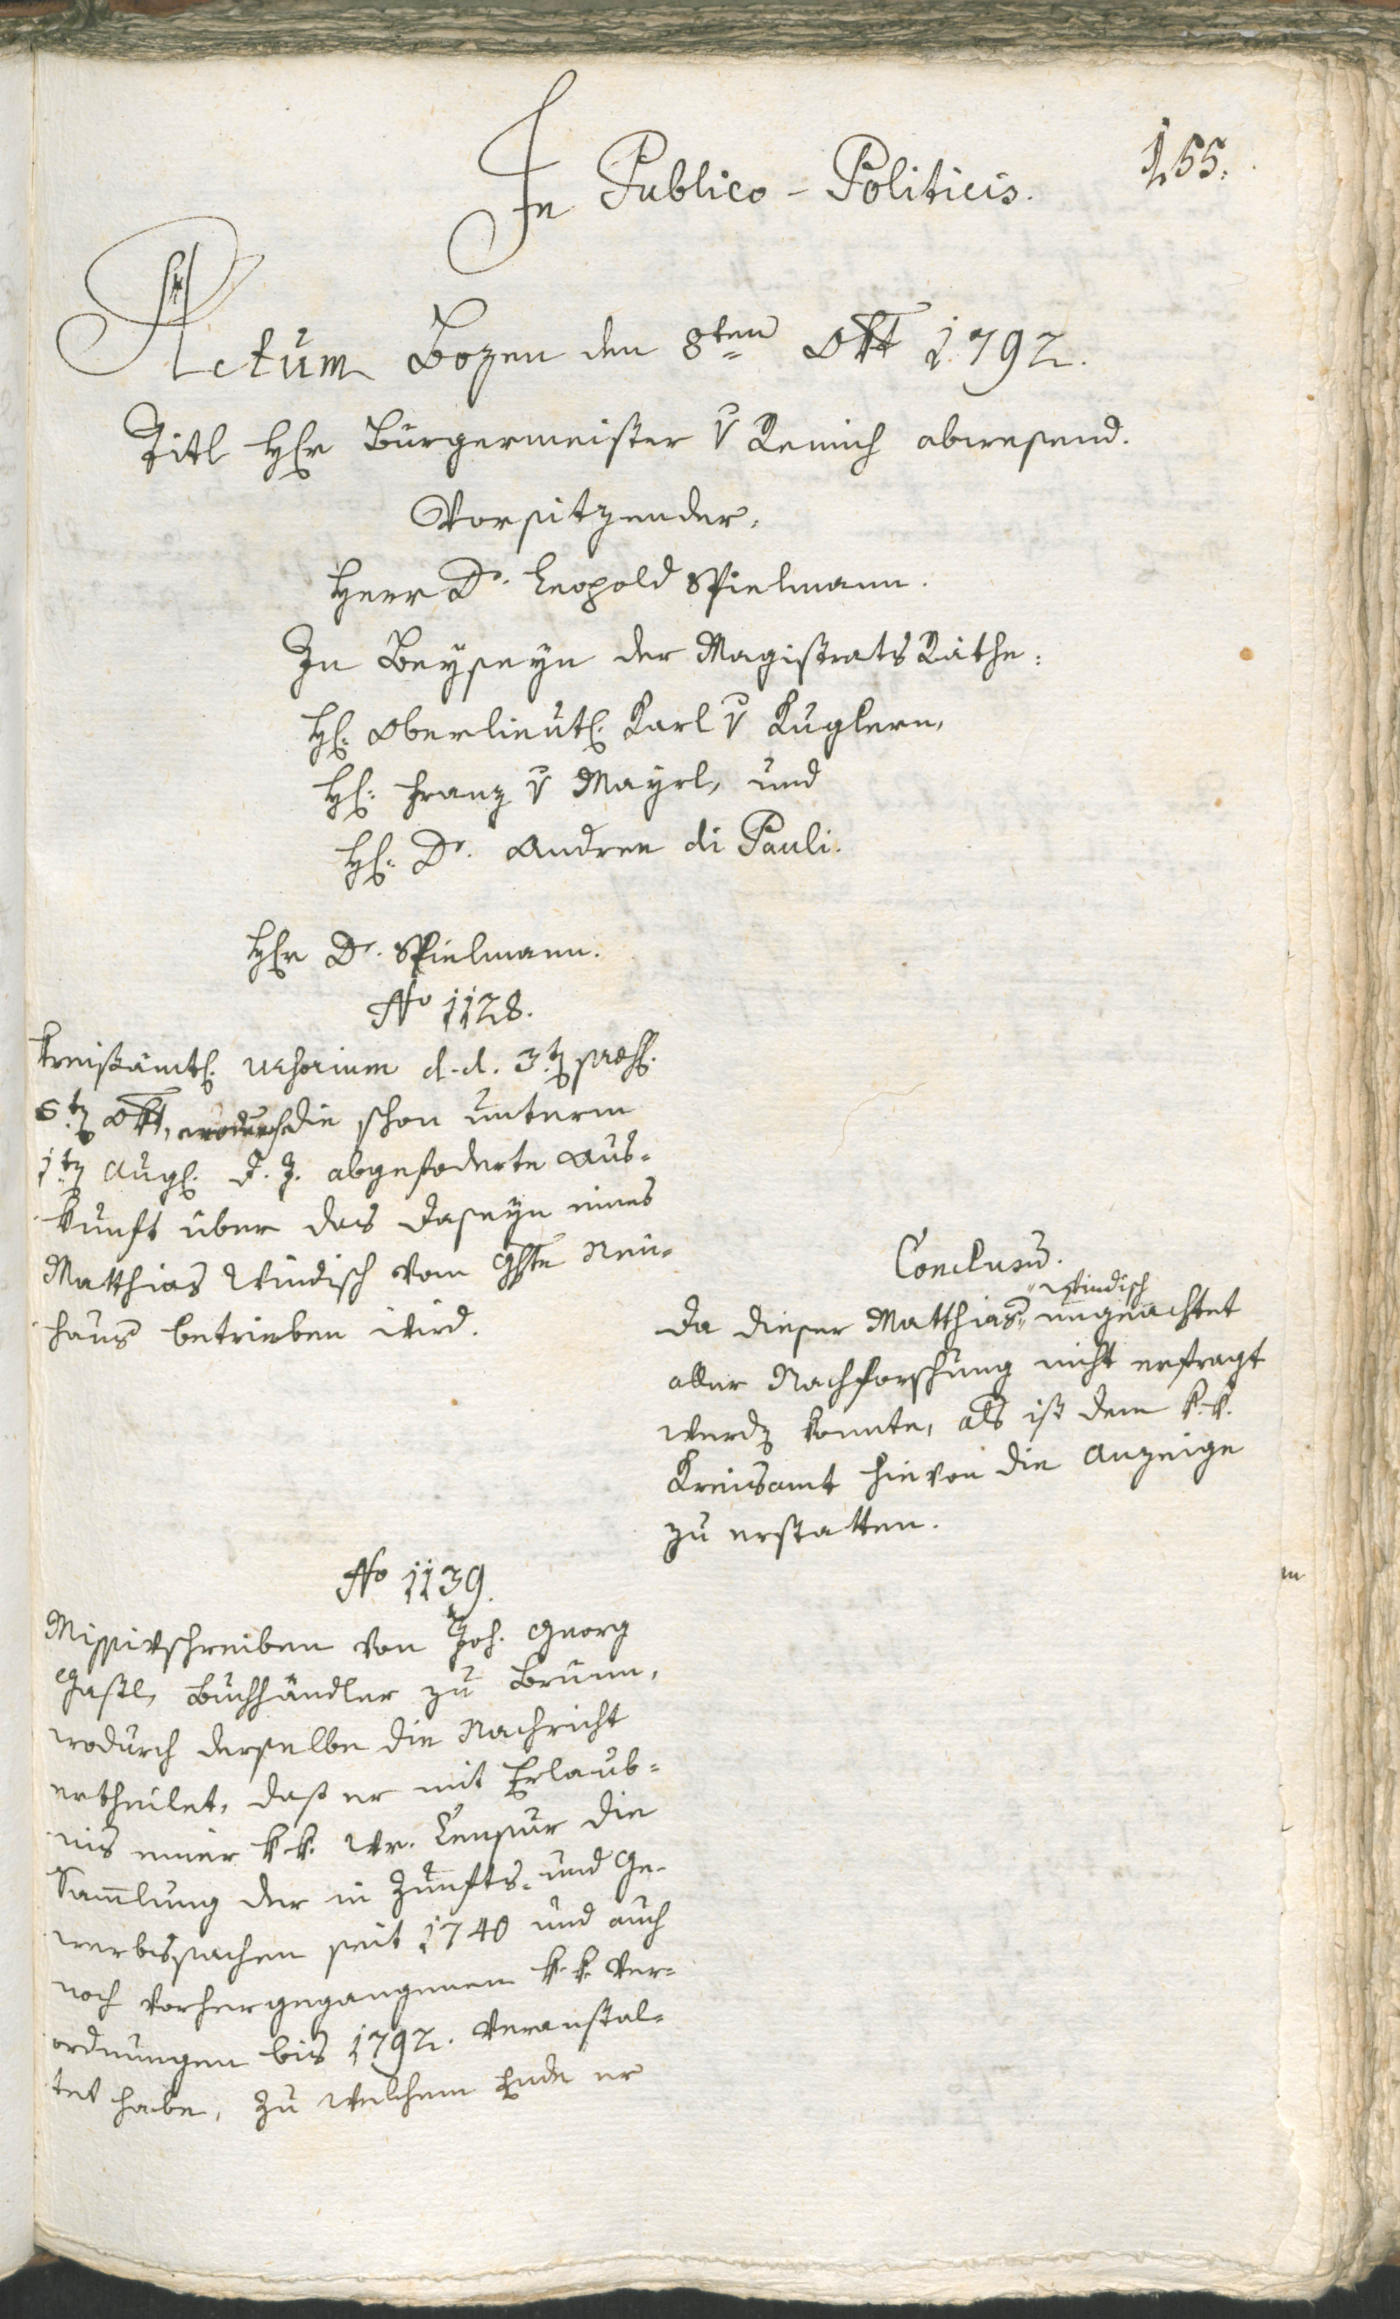 155.
In Publico-Politicis.
Actum Bozen den 8ten Okt 1792.
Titl Hr Bürgermeister v Remich abwesend.
Vorsitzender,
Herr Dr. Leopold Spielmann.
In Beyseyn der Magistrats Räthe:
H: Oberlieut: Karl v Kuglern,
H: Franz v Mayrl, und
H: Dr. Andree di Pauli.
Hr Dr. Spielmann.
No 1128.
Kreisämtl: Urhorium d.d. 3t
6t Okt, wodurch die schon unterm
1t Aug: d. J. abgefoderte Aus-
kunft über das Daseyn eines
Matthias Windisch vom Gste Neu-
haus betrieben wird.
Conclusum.
Da dieser Matthias Windisch ungeachtet
aller Nachforschung nicht erfragt
werden konnte, als ist dem k.k.
Kreisamt hievon die Anzeige
zu erstatten.
No 1139.
Missivschreiben von Joh. Georg
Gastl, Buchhändler zu Brünn,
wodurch derselbe die Nachricht
ertheilet, daß er mit Erlaub-
nis einer k.k. Wr. Censur die
Sammlung der in Zunfts- und Ge-
werbssachen seit 1740 und auch
noch vorhergegangenen k.k. Ver-
ordnungen bis 1792. veranstal-
tet habe, zu welchem Ende er